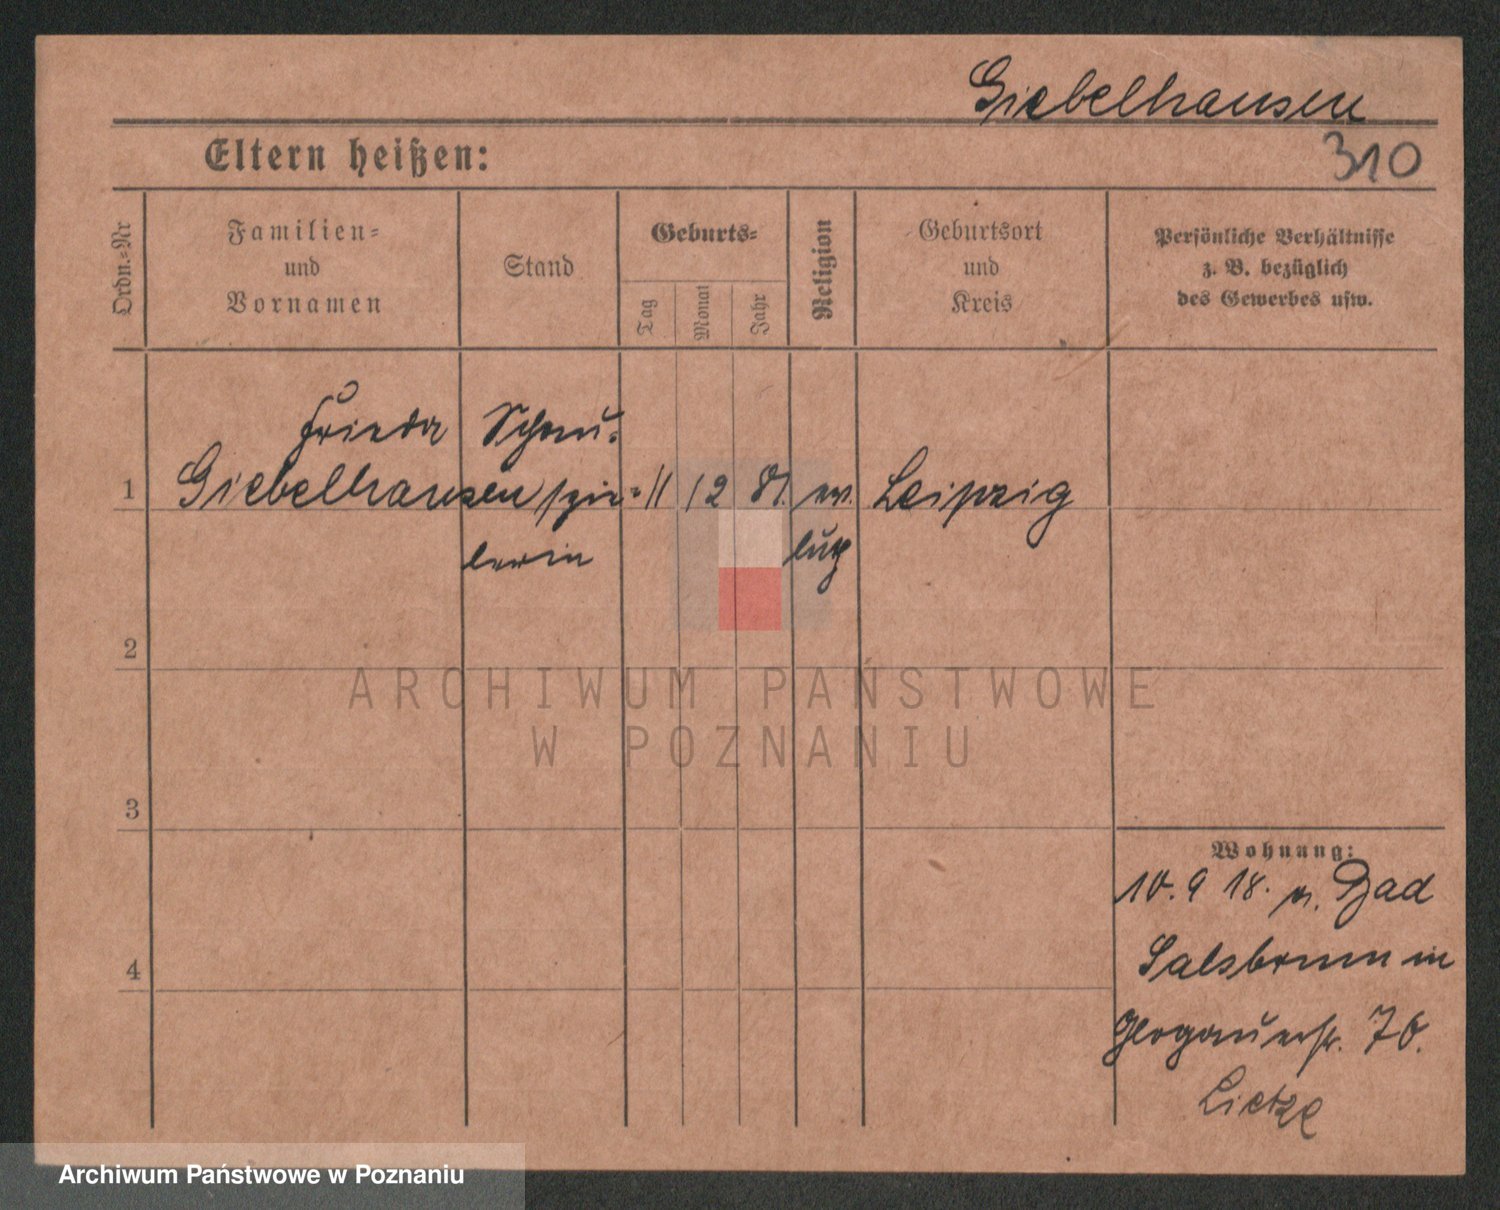 Giebelhausen
310
Eltern heißen:
Ordn.-Nr
Familien-
und
Vornamen
Stand
Geburts-
Tag
Monat
Jahr
Religion
Geburtsort
und
Kreis
Persönliche Verhältnisse
z. B. bezüglich
des Gewerbes usw.
Frieda Schau-
1 Giebelhausen spie- 11 12 81. ev. Leipzig
lerin luth
2
3
4
Wohnung:
10. 9 18. v. Bad
Salzbrunn in
Glogauerstr. 76.
Lietze
ARCHIWUM PAŃSTWOWE
W POZNANIU
Archiwum Państwowe w Poznaniu